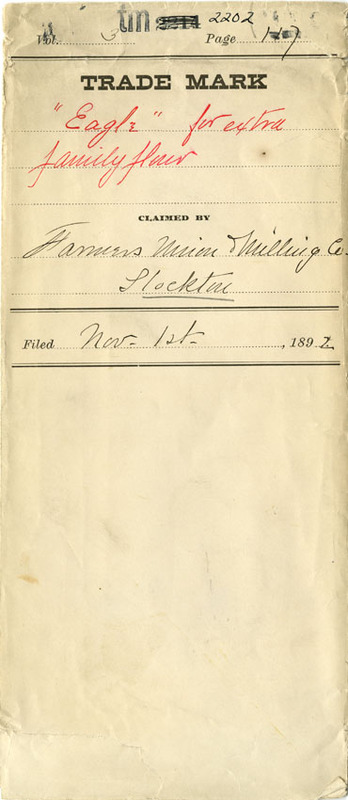 tm 2202
Vol. 3 Page 147
TRADE MARK
"Eagle" for extra
family flour
CLAIMED BY
Farmers Union & Milling Co.
Stockton
Filed Nov. 1st. , 1892